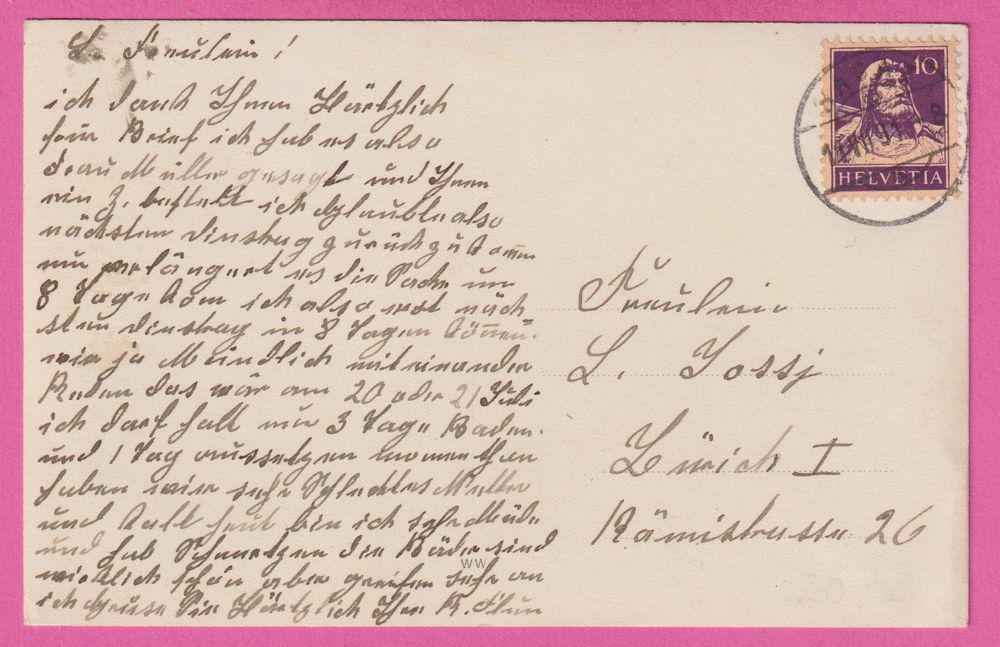 L. Freulein!
ich dank Ihnen Härtzlich
für Brief ich hab es also
Frau Müller gesagt und Ihnen
ein Z. bestelt ich glaubte also
nächsten Dinstag zurückzukommen
nu verlängert es die Sache um
8 Tage kom ich also erst näch
sten Dinstag in 8 Tagen können
wir ja Mündlich miteinander
Reden das wär am 20 oder 21 Juli
ich darf halt nur 3 Tage Baden
und 1 Tag aussetzen momenthan
haben wir sehr Schlechtes Wetter
und kalt heut bin ich sehr Müde
und hab Schmertzen die Bäder sind
wirklich schön aber greifen sehr an
ich grüsse Sie Härtzlich Ihr R.
10
HELVETIA
Freulein
L. Jossj
Zürich I
Rämistrasse 26
WW